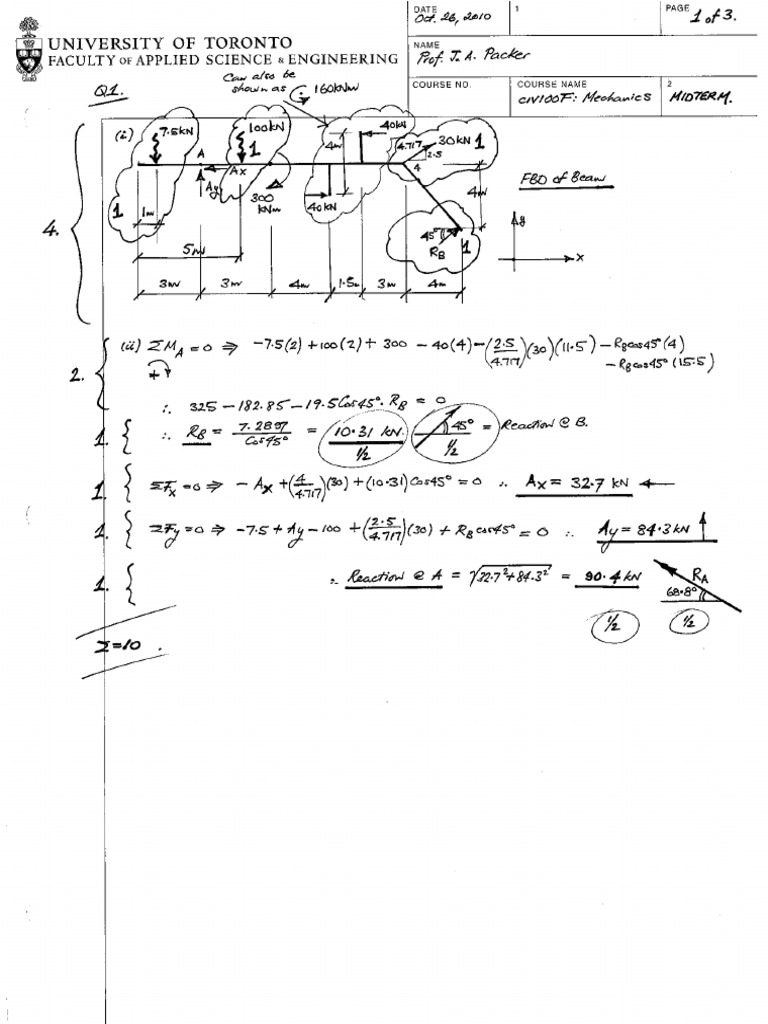 DATE
Oct. 26, 2010
1
PAGE
1 of 3.
UNIVERSITY OF TORONTO
FACULTY OF APPLIED SCIENCE & ENGINEERING
NAME
Prof. J. A. Packer
COURSE NO.
COURSE NAME
CIV100F: Mechanics
2
MIDTERM.
Q1.
Can also be
shown as 160kNm
(i)
7.5kN
100kN
1
40kN
4m
4.717
2.5
4
30kN
1
A
Ax
Ay
300
kNm
40kN
1
1m
4m
FBD of Beam
4.
5m
45°
RB
1
y
x
3m 3m 4m 1.5m 3m 4m
2.
(ii) ΣMA = 0 ⇒ -7.5(2) + 100(2) + 300 - 40(4) - (2.5/4.717)(30)(11.5) - RBcos45°(4)
- RBcos45°(15.5)
+
∴ 325 - 182.85 - 19.5Cos45°. RB = 0
1.
∴ RB = 7.2897/Cos45° = 10.31 kN. 45° = Reaction @ B.
½ ½
1.
ΣFx = 0 ⇒ - Ax + (4/4.717)(30) + (10.31)Cos45° = 0 ∴ Ax = 32.7 kN ←
1.
ΣFy = 0 ⇒ -7.5 + Ay - 100 + (2.5/4.717)(30) + RBcos45° = 0 ∴ Ay = 84.3kN ↑
1.
∴ Reaction @ A = √32.7² + 84.3² = 90.4 kN RA
68.8°
½ ½
Σ = 10.